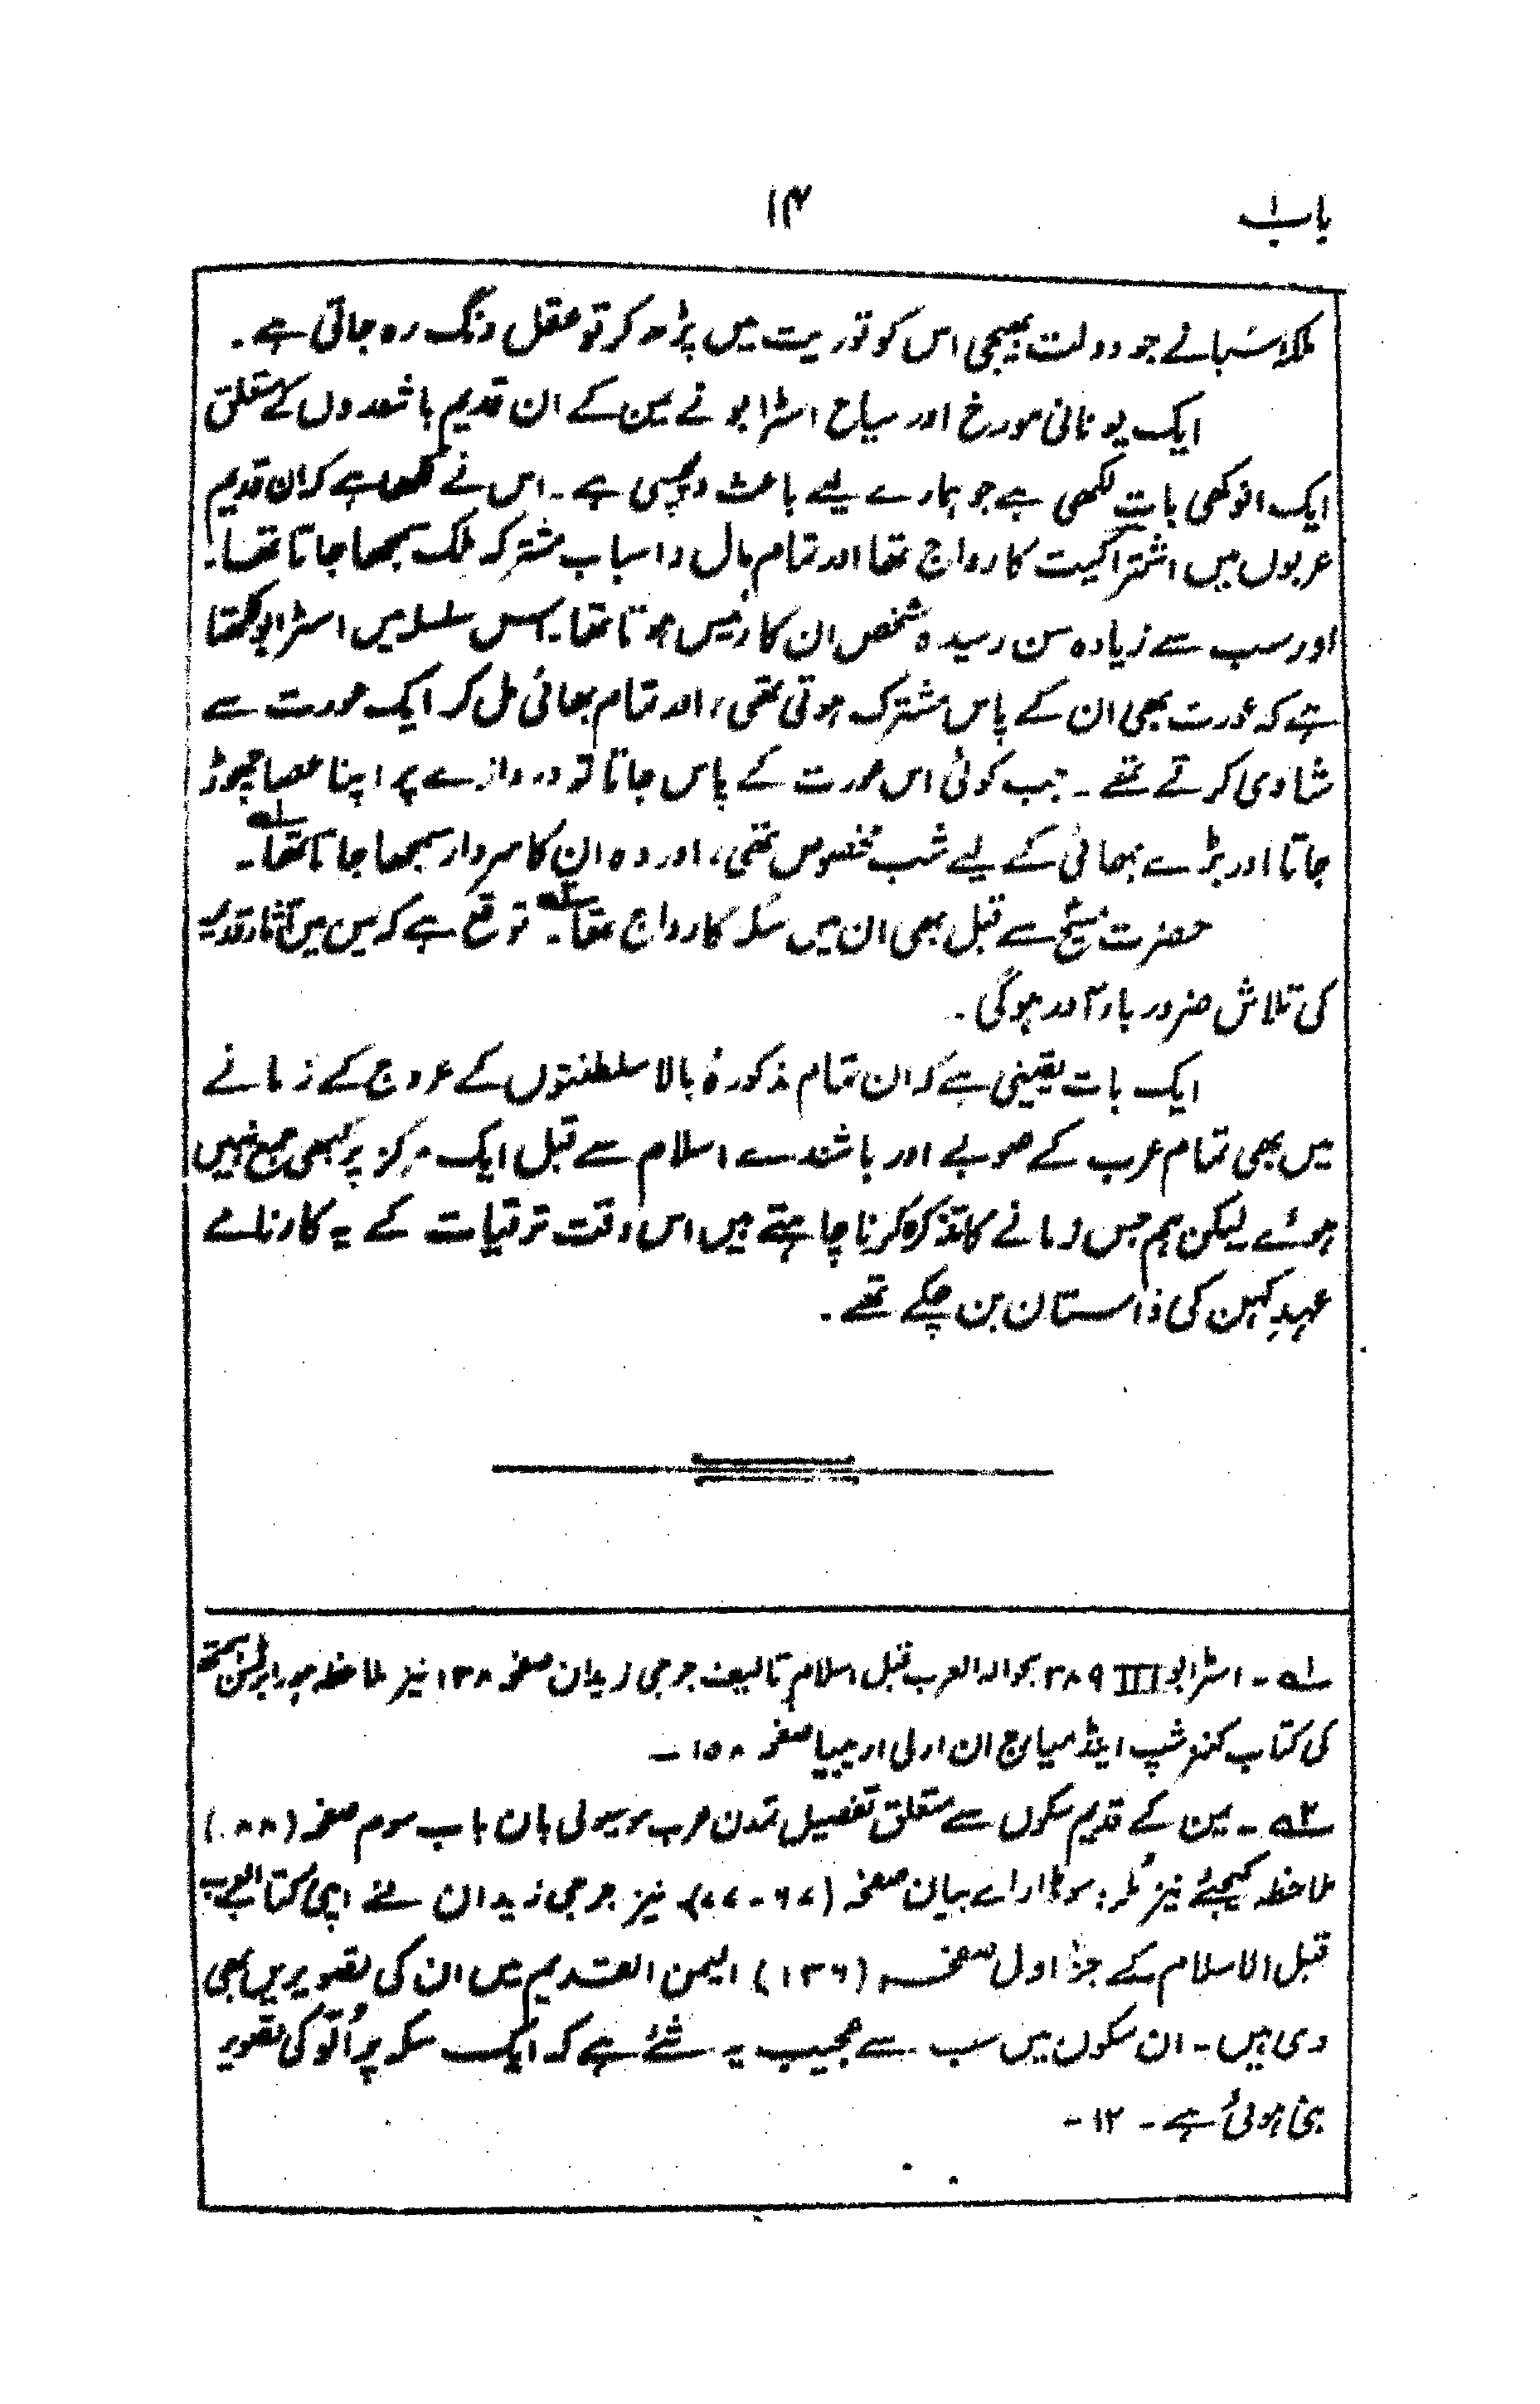 باب ۱
۱۴
ملکہ سَبا نے جو دولت بھیجی اس کو توریت میں پڑھ کر تو عقل دنگ رہ جاتی ہے۔
ایک یونانی مورخ اور سیاح اسٹرابو نے یمن کے ان قدیم باشندوں کے متعلق
ایک انوکھی بات لکھی ہے جو ہمارے لیے باعث دلچسپی ہے۔ اس نے لکھا ہے کہ ان قدیم
عربوں میں اشتراکیت کا رواج تھا اور تمام مال و اسباب مشترکہ ملک سمجھا جاتا تھا۔
اور سب سے زیادہ سن رسیدہ شخص ان کا رئیس ہوتا تھا۔ اس سلسلہ میں اسٹرابو لکھتا
ہے کہ عورت بھی ان کے پاس مشترک ہوتی تھی، اور تمام بھائی مل کر ایک عورت سے
شادی کرتے تھے۔ جب کوئی اس عورت کے پاس جاتا تو دروازے پر اپنا عصا چھوڑ
جاتا اور بڑے بھائی کے لیے شب مخصوص تھی، اور وہ ان کا سردار سمجھا جاتا تھا۔ ؎۱
حضرت مسیح سے قبل بھی ان میں سکہ کا رواج تھا۔ ؎۲ توقع ہے کہ یمن میں آثار قدیمہ
کی تلاش ضرور بار آور ہوگی۔
ایک بات یقینی ہے کہ ان تمام مذکورۂ بالا سلطنتوں کے عروج کے زمانے
میں بھی تمام عرب کے صوبے اور باشندے اسلام سے قبل ایک مرکز پر کبھی جمع نہیں
ہوئے لیکن ہم جس زمانے کا تذکرہ کرنا چاہتے ہیں اس وقت ترقیات کے یہ کارنامے
عہدِ کہن کی داستان بن چکے تھے۔
؎۱۔ اسٹرابو III ۲۸۹ بحوالہ العرب قبل اسلام تالیف جرجی زیدان صفحہ ۱۳۸ نیز ملاحظہ ہو رابرٹسن اسمتھ
کی کتاب کنز شپ اینڈ میارج ان ارلی اربیبیا صفحہ ۱۵۸۔
؎۲۔ یمن کے قدیم سکوں سے متعلق تفصیل تمدن عرب موسیو لی بان باب سوم صفحہ (۸۸)
ملاحظہ کیجئے نیز صفحہ (۶۷-۷۷)۔ نیز جرجی زیدان نے اپنی کتاب العرب
قبل الاسلام کے جز اول صفحہ (۱۳۶) الیمن القدیم میں ان کی تصویریں بھی
دی ہیں۔ ان سکوں میں سب سے عجیب یہ شئے ہے کہ ایک سکہ پر اُلّو کی تصویر
بنی ہوئی ہے۔ ۱۲۔